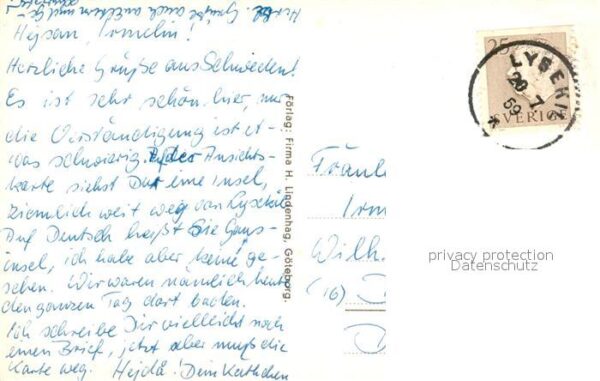 Herzl. Grüße auch an Eltern und
Hejsan, Irmelin!
Herzliche Grüße aus Schweden!
Es ist sehr schön hier, nur
die Verständigung ist et-
was schwierig. Auf der Ansichts-
karte siehst Du eine Insel,
ziemlich weit weg von Lysekil
Auf Deutsch heißt sie Gans-
insel, ich habe aber keine ge-
sehen. Wir waren nämlich heute
den ganzen Tag dort baden.
Ich schreibe Dir vielleicht noch
einen Brief, jetzt aber muß die
Karte weg. Hejdå! Dein Kathchen
Förlag: Firma H. Lindenhag, Göteborg.
25
SVERIGE
LYSEKIL
20 7
59
Fräule
Irm
Wilh.
(16) D
D
privacy protection
Datenschutz